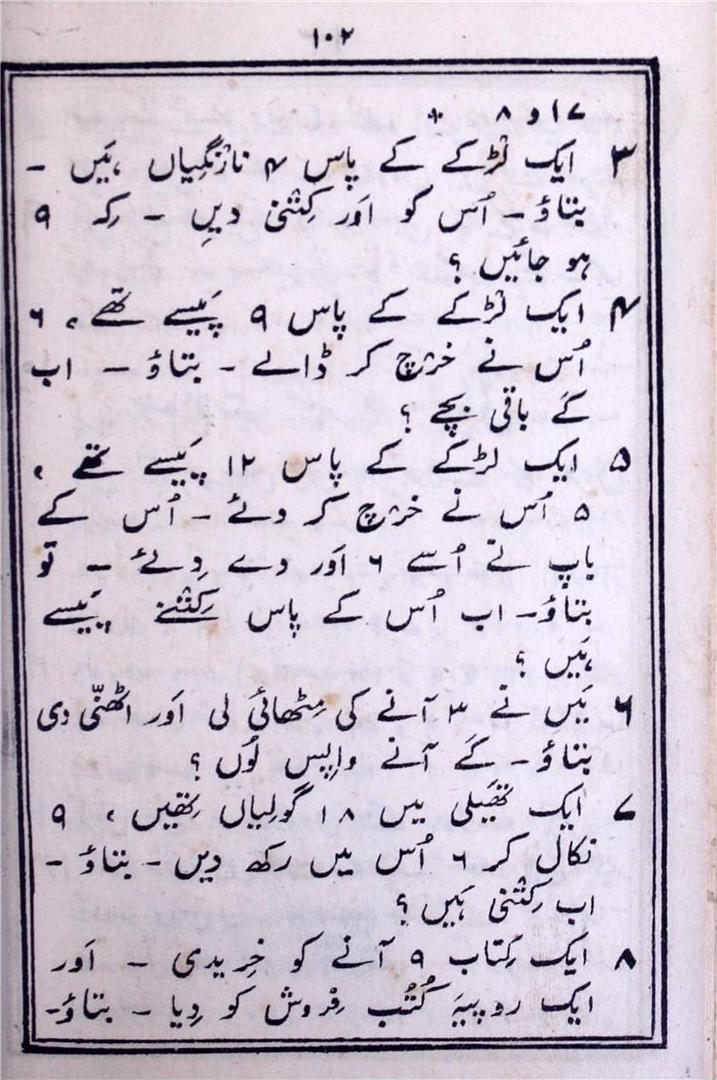 ۱۰۲
۱۷ و ۸ +
۳ ایک لڑکے کے پاس ۴ نارنگیاں ہَیں ۔
بتاؤ ۔ اُس کو اَور کِتنی دیں ۔ کہ ۹
ہو جائیں ؟
۴ ایک لڑکے کے پاس ۹ پَیسے تھے، ۶
اُس نے خرچ کر ڈالے ۔ بتاؤ ۔ اب
کَے باقی بچے ؟
۵ ایک لڑکے کے پاس ۱۲ پَیسے تھے ،
۵ اُس نے خرچ کر دئے ۔ اُس کے
باپ نے اُسے ۶ اَور دے دِئے ۔ تو
بتاؤ ۔ اب اُس کے پاس کِتنے پَیسے
ہَیں ؟
۶ مَیں نے ۳ آنے کی مِٹھائی لی اَور اٹھنّی دی
بتاؤ ۔ کَے آنے واپس لُوں ؟
۷ ایک تھَیلی میں ۱۸ گولیاں تھیں ، ۹
نکال کر ۶ اُس میں رکھ دیں ۔ بتاؤ ۔
اب کِتنی ہَیں ؟
۸ ایک کِتاب ۹ آنے کو خریدی ۔ اَور
ایک روپیہ کُتُب فِروش کو دِیا ۔ بتاؤ۔